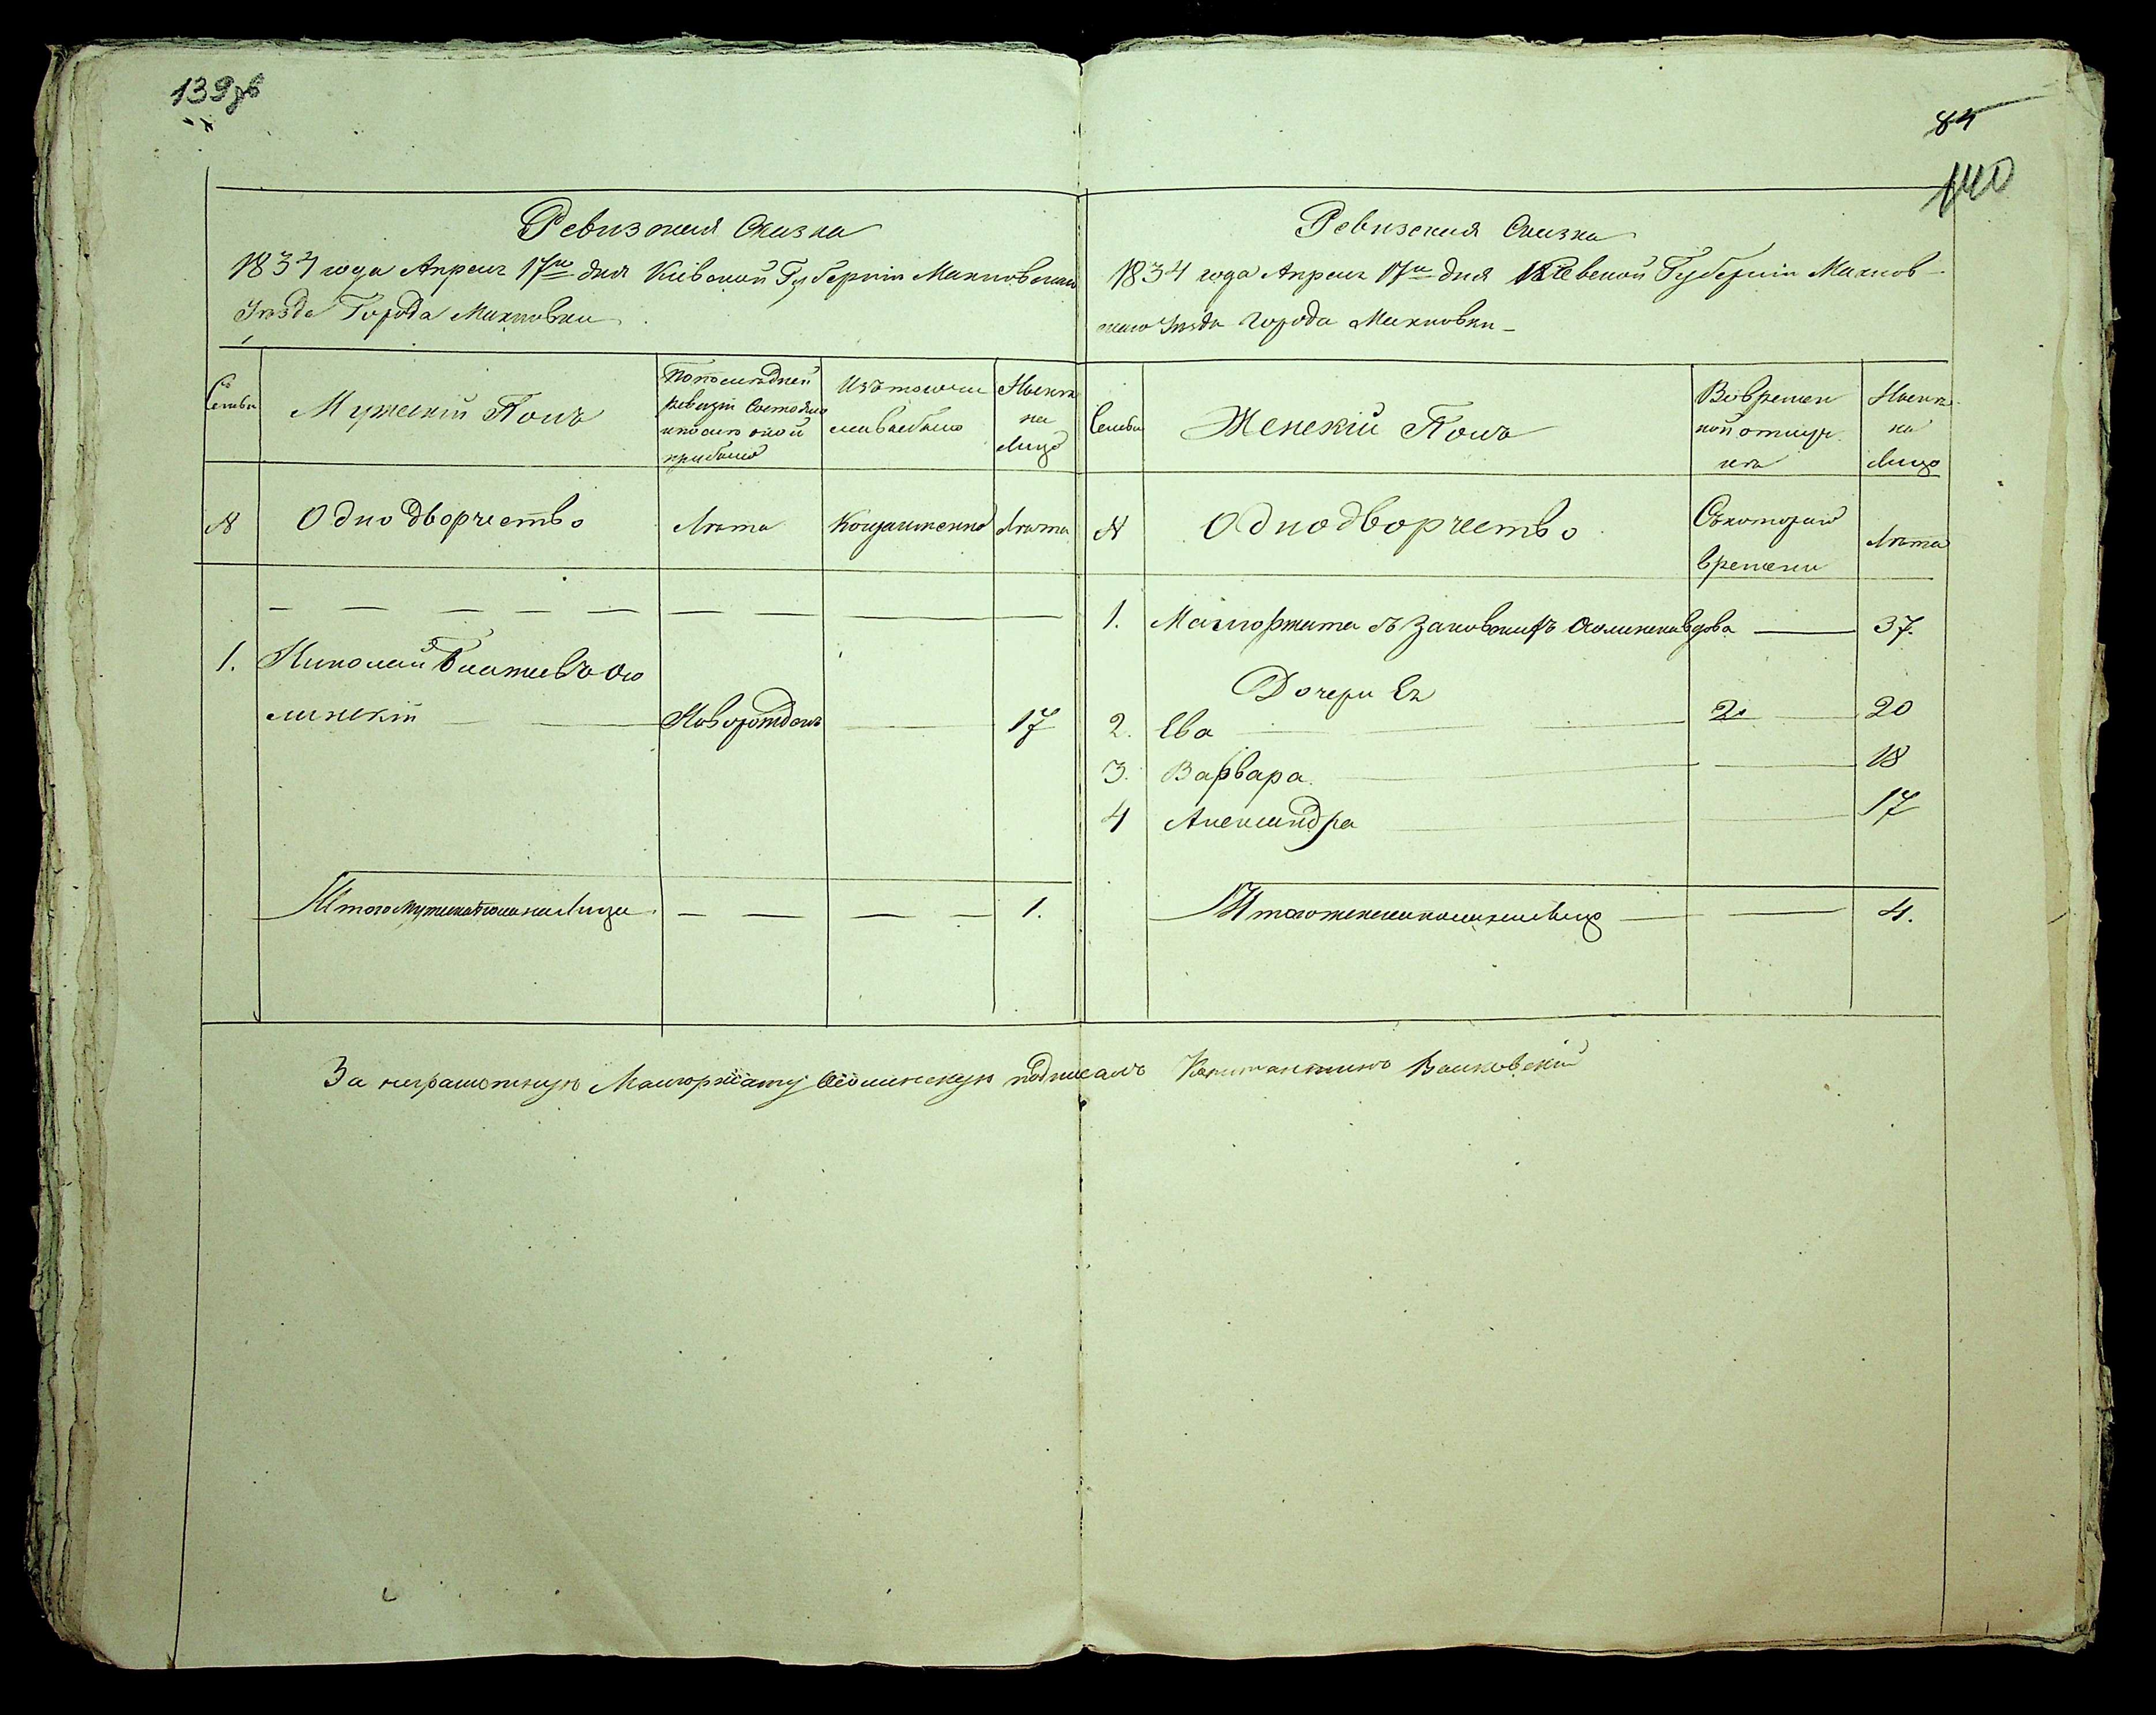 139зв
84
140
Ревизская Сказка
1834 года Апреля 17го дня Кіевской Губерніи Махновскаго
Уезда Города Махновки
Семьи
Мужескій Полъ
По последней
ревизіи состояло
и после оной
прибыло
Изъ того числа
выбыло
Ныне
на
Лицо
№
Однодворчество
Лета
Когда именно
Лета
1. Николай
линскій Новорожден 17
Итого мужеска пола на Лицо 1.
Ревизская Сказка
1834 года Апреля 17го дня Кіевской Губерніи Махнов-
скаго Уезда Города Махновки
Семьи
Женскій Полъ
Во времен
ной отлуч
ке
Ныне
на
Лицо
№
Однодворчество
Съ котораго
времени
Лета
1. Малгоржата вдова 37.
Дочери Ея
2. Ева 20
3. Варвара 18
4 Александра 17
Итого женска пола на Лицо 4.
За неграмотную Малгоржату подписалъ Константинъ